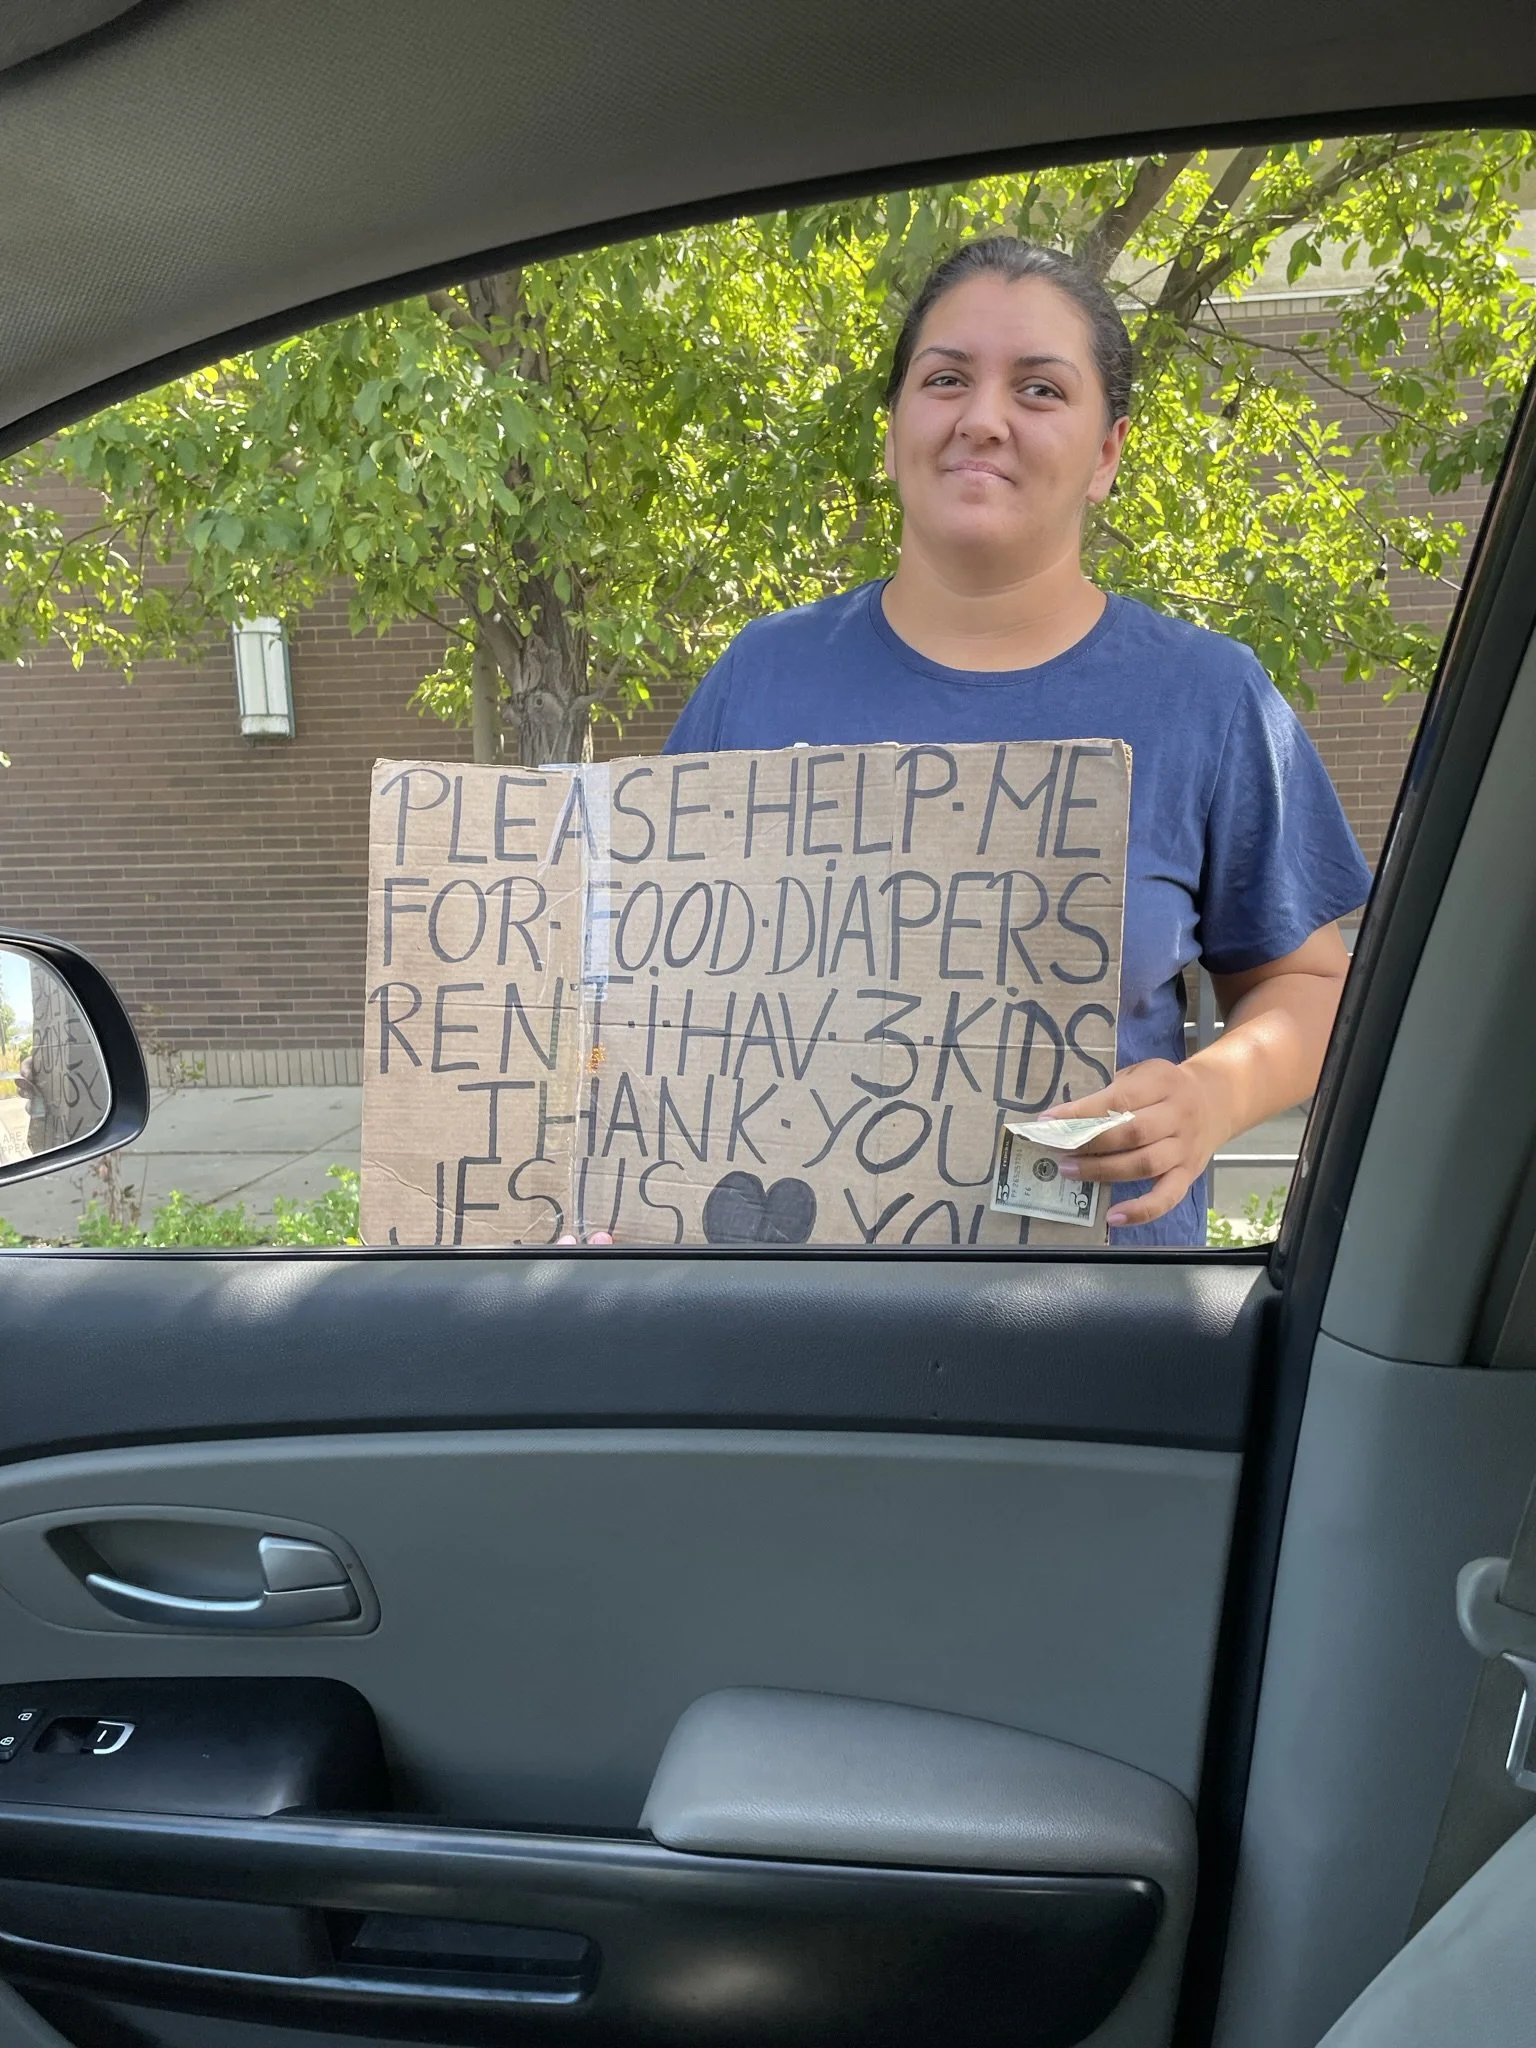 PLEASE·HELP·ME
FOR·FOOD·DIAPERS
RENT·I·HAV·3·KIDS
THANK·YOU
JESUS ♥ YOU
5